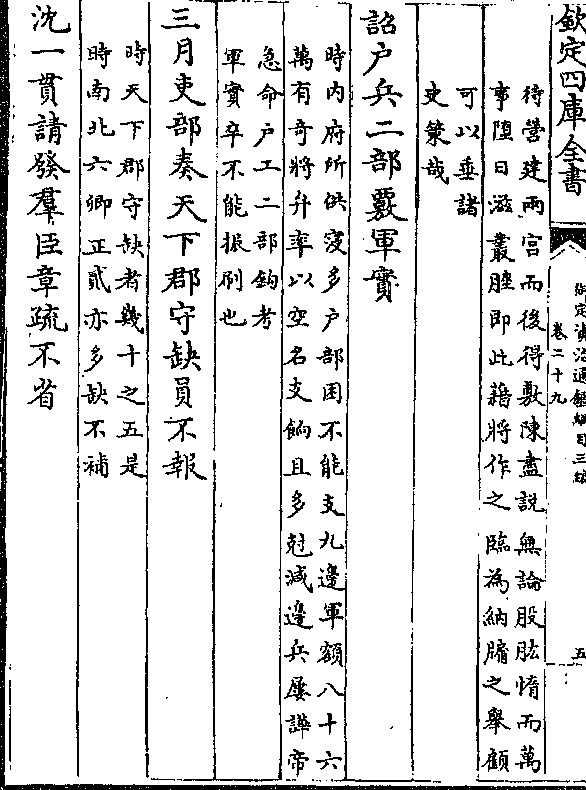 欽定四庫全書
御定資治通鑑綱目三編
卷二十九
五
待營建兩宮而後得敷陳盡說無論股肱惰而萬
事墮日滋叢脞即此藉將作之臨為納牖之舉顧
可以垂諸
史策哉
詔户兵二部覈軍實
時内府所供寖多户部困不能支九邊軍額八十六
萬有奇將弁率以空名支餉且多尅減邊兵屢譁帝
急命户工二部鉤考
軍實卒不能振刷也
三月吏部奏天下郡守缺員不報
時天下郡守缺者幾十之五是
時南北六卿正貳亦多缺不補
沈一貫請發羣臣章疏不省